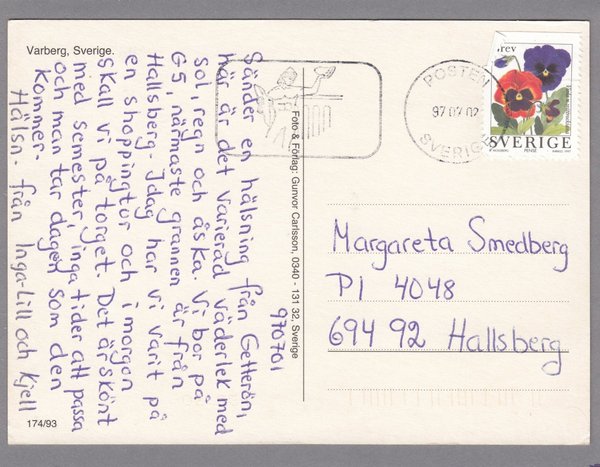 Varberg, Sverige.
970701
Sänder en hälsning från Getterön,
här är det varierad väderlek med
sol, regn och åska. Vi bor på
G5, närmaste grannen är från
Hallsberg. Idag har vi varit på
en shoppingtur och i morgon
skall vi på torget. Det är skönt
med semester, inga tider att passa
och man tar dagen som den
kommer.
Hälsn. från Inga-Lill och Kjell
174/93
Foto & Förlag: Gunvor Carlsson, 0340 - 131 32, Sverige
POSTEN
97 07 02
SVERIGE
brev
SVERIGE
PENSÉ
Margareta Smedberg
Pl 4048
694 92 Hallsberg